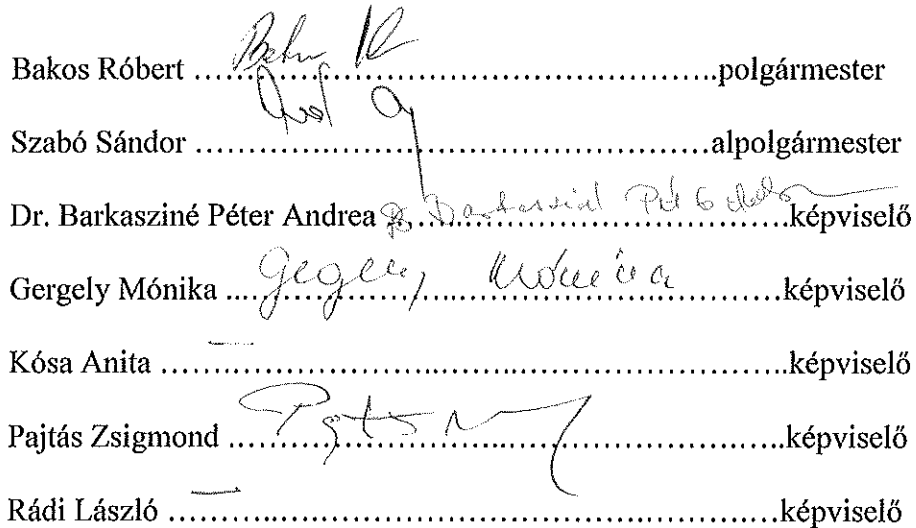 Bakos Róbert ........................................polgármester
Szabó Sándor ........................................alpolgármester
Dr. Barkasziné Péter Andrea ........................................képviselő
Gergely Mónika ........................................képviselő
Kósa Anita ........................................képviselő
Pajtás Zsigmond ........................................képviselő
Rádi László ........................................képviselő